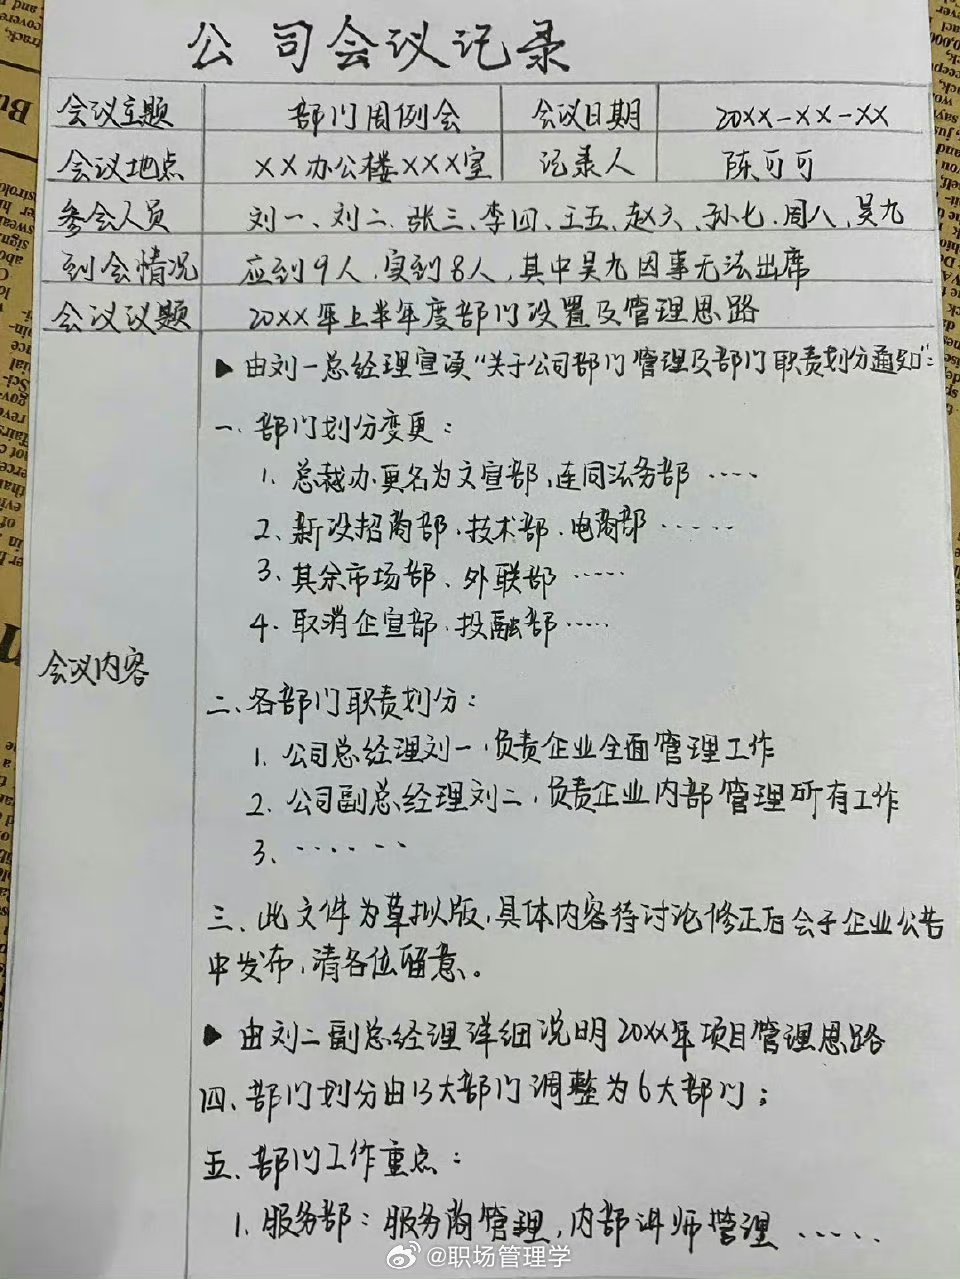 公司会议记录
会议主题 部门周例会 会议日期 20XX-XX-XX
会议地点 XX办公楼XXX室 记录人 陈可可
参会人员 刘一、刘二、张三、李四、王五、赵六、孙七、周八、吴九
到会情况 应到9人,实到8人,其中吴九因事无法出席
会议议题 20XX年上半年度部门设置及管理思路
会议内容
▶由刘一总经理宣读"关于公司部门管理及部门职责划分通知":
一、部门划分变更:
1、总裁办更名为文宣部、连同法务部……
2、新设招商部、技术部、电商部……
3、其余市场部、外联部……
4、取消企宣部、投融部……
二、各部门职责划分:
1、公司总经理刘一,负责企业全面管理工作
2、公司副总经理刘二,负责企业内部管理所有工作
3、……
三、此文件为草拟版,具体内容待讨论修正后会于企业公告
中发布,请各位留意。
▶由刘二副总经理详细说明20XX年项目管理思路
四、部门划分由13大部门调整为6大部门;
五、部门工作重点:
1、服务部:服务商管理,内部讲师管理……
@职场管理学